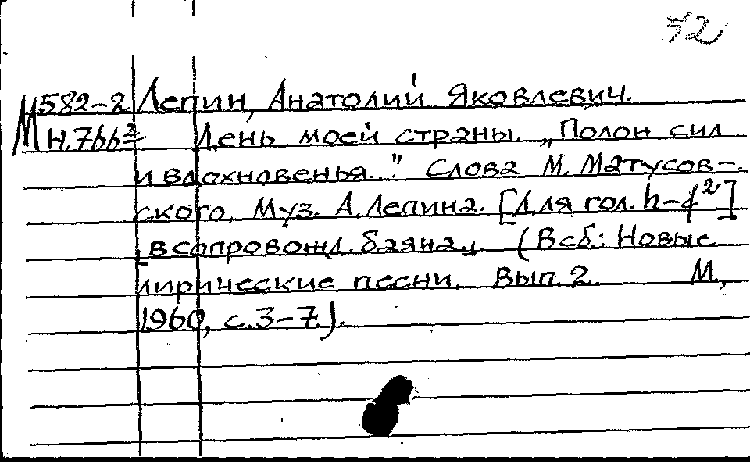 72
М 582-2 Лепин, Анатолий Яковлевич.
М Н.766² День моей страны. „Полон сил
и вдохновенья..." Слова М. Матусов-
ского. Муз. А. Лепина. [Для гол. h-f²]
[в сопровожд. баяна]. (В сб.: Новые
лирические песни. Вып. 2. М.,
1960, с. 3-7).